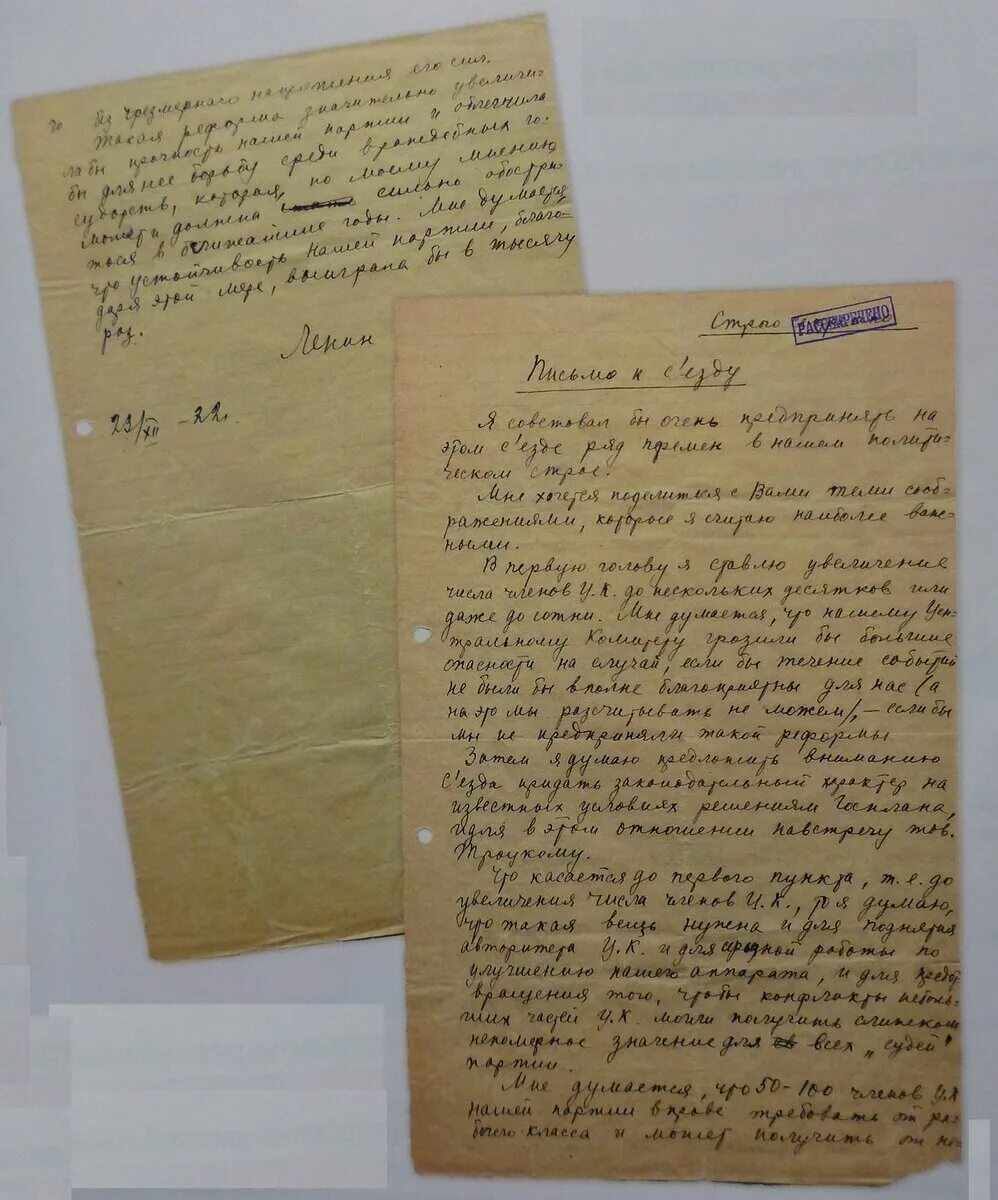 го без чрезмерного напряжения его сил.
Такая реформа значительно увеличи-
ла бы прочность нашей партии и облегчила
бы для нее борьбу среди враждебных го-
сударств, которая, по моему мнению
может и должна сильно обостри-
ться в ближайшие годы. Мне думается
что устойчивость нашей партии, благо-
даря этой мере, выиграла бы в тысячу
раз.
Ленин
23/XII -22.
Строго
РАССЕКРЕЧЕНО
Письмо к с'езду
Я советовал бы очень предпринять на
этом с'езде ряд перемен в нашем полити-
ческом строе.
Мне хочется поделиться с Вами теми сооб-
ражениями, которые я считаю наиболее важ-
ными.
В первую голову я ставлю увеличение
числа членов Ц.К. до нескольких десятков или
даже до сотни. Мне думается, что нашему Цен-
тральному Комитету грозили бы большие
опасности на случай, если бы течение событий
не были бы вполне благоприятны для нас (а
на это мы рассчитывать не можем/, – если бы
мы не предприняли такой реформы.
Затем я думаю предложить вниманию
с'езда придать законодательный характер на
известных условиях решениям Госплана,
идя в этом отношении навстречу тов.
Троцкому.
Что касается до первого пункта, т.е. до
увеличения числа членов Ц.К., то я думаю,
что такая вещь нужна и для поднятия
авторитета Ц.К. и для серьезной работы по
улучшению нашего аппарата, и для предот
вращения того, чтобы конфликты неболь-
ших частей Ц.К. могли получить слишком
непомерное значение для всех „судеб"
партии.
Мне думается, что 50-100 членов Ц.К
нашей партии вправе требовать от ра-
бочего класса и может получить от не-